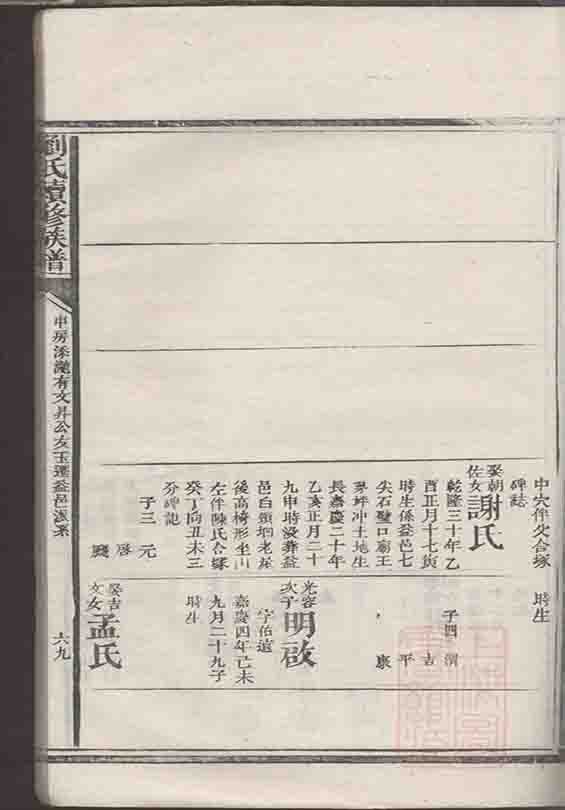 劉氏續修族譜
中穴伴父合塚
碑誌
娶朝佐女謝氏
乾隆三十年乙
酉正月十七寅
時生係益邑七
尖石壁口廟王
茅坪冲土地生
長嘉慶二十年
乙亥正月二十
九申時沒葬益
邑白頭垇老屋
後高椅形坐山
左伴陳氏合塚
癸丁向丑未三
分碑記
子三 元
啓
時生
子四
吉
平
康
光容次子明啟
字佑遠
嘉慶四年己未
九月二十九子
時生
娶吉文女孟氏
六九